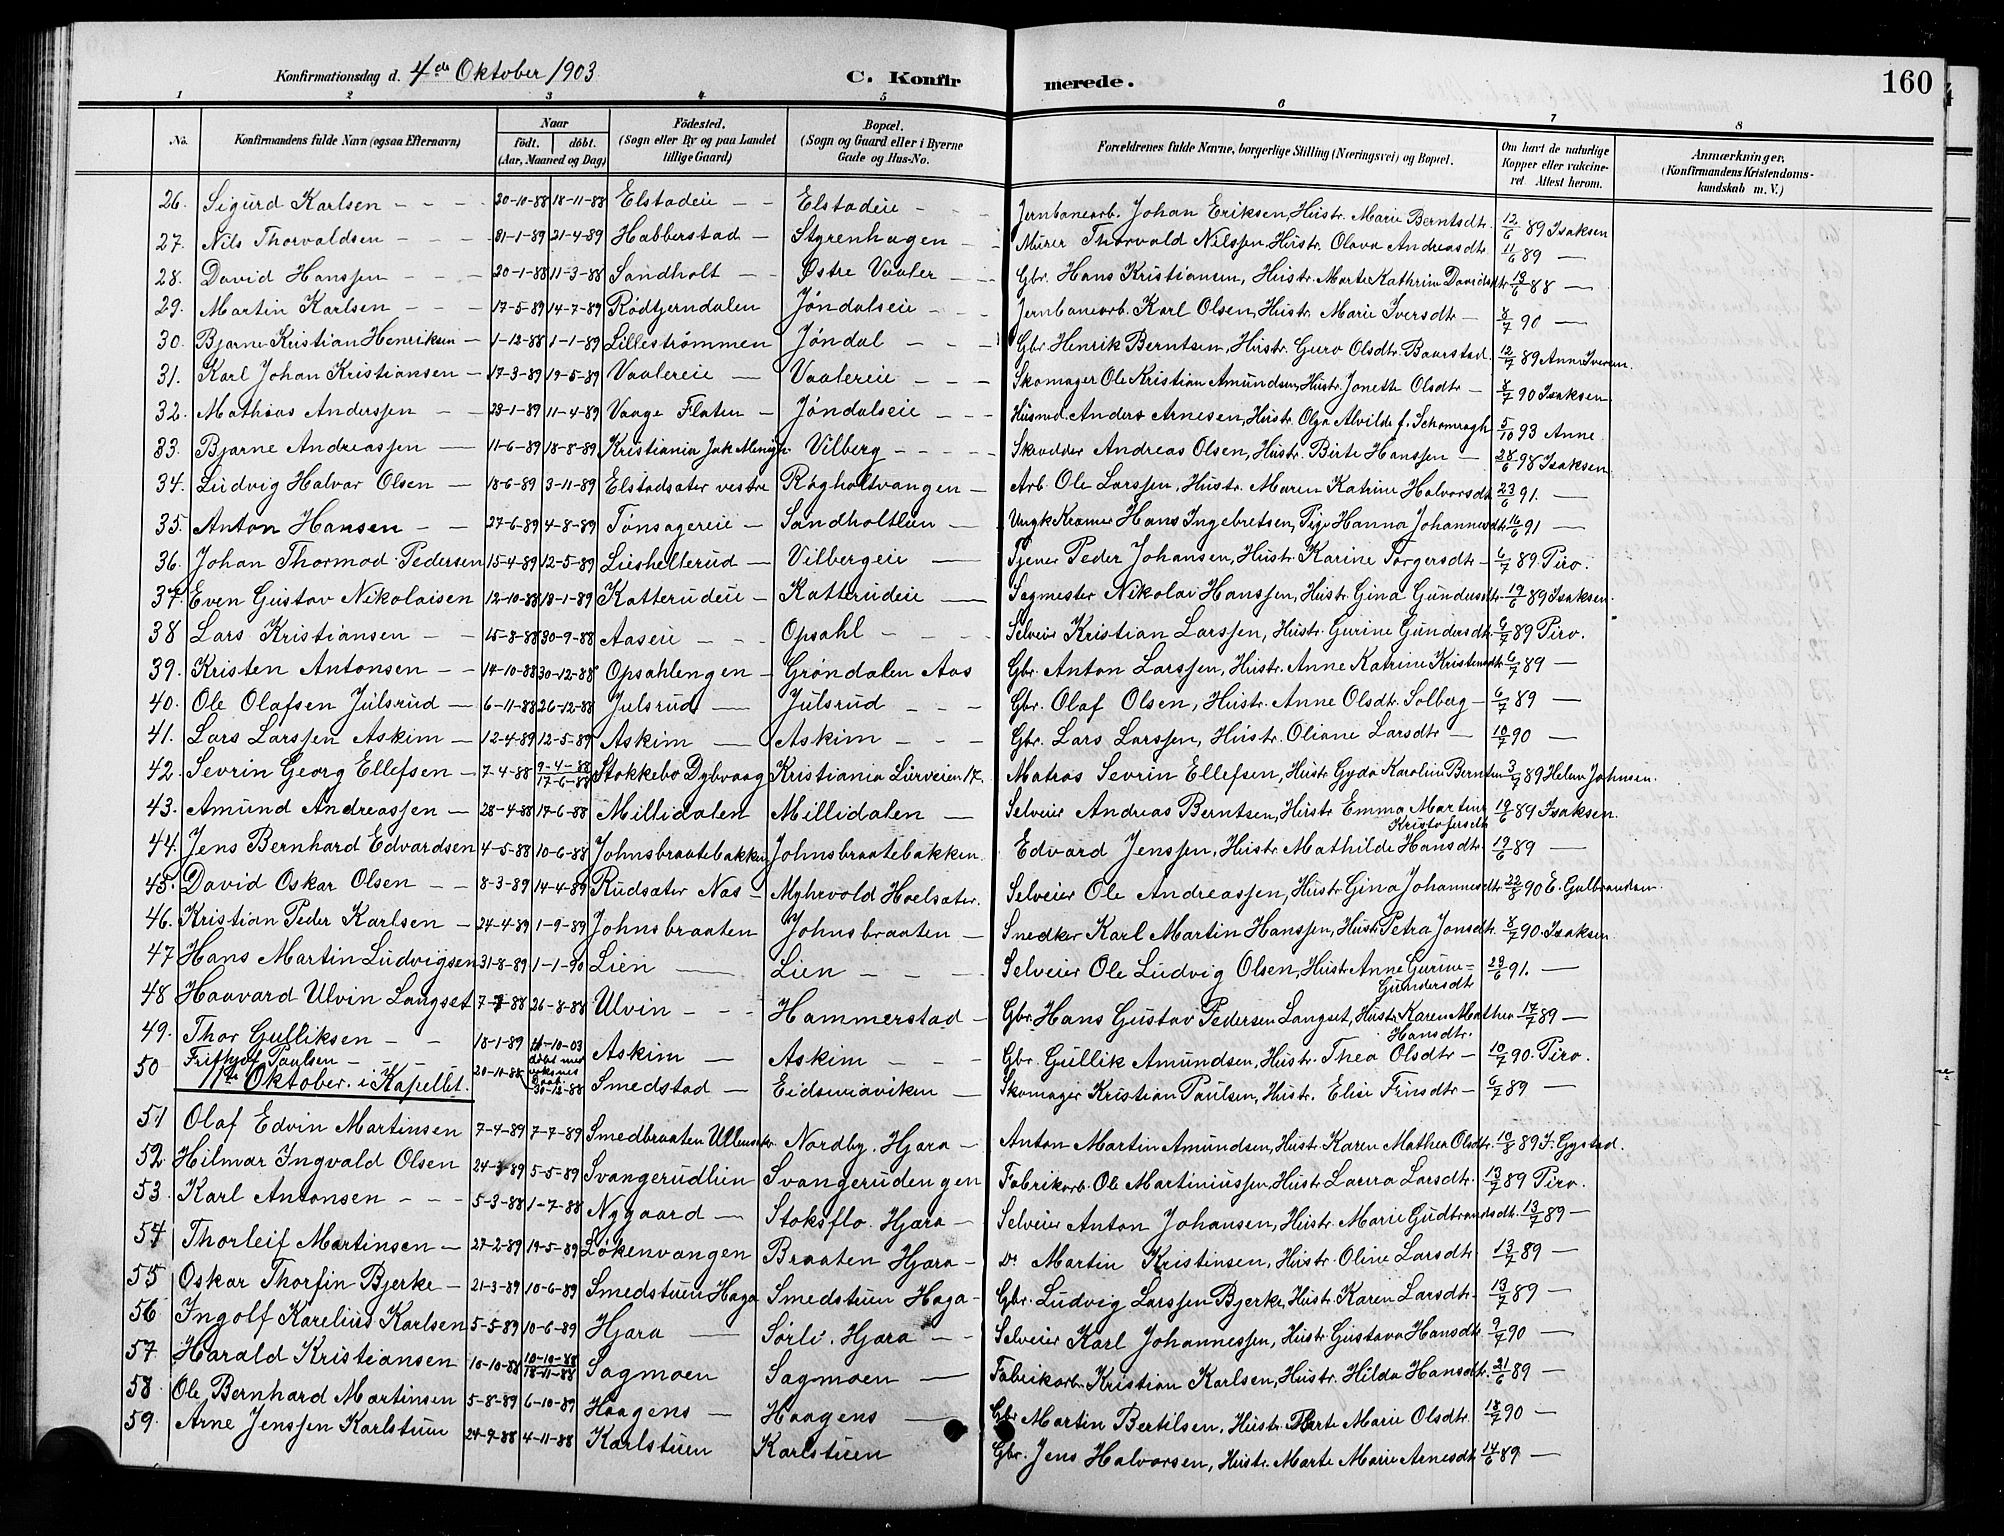 Konfirmationsdag d. 4de Oktober 1903
C. Konfirmerede.
160
1 2 3 4 5 6 7 8
No. Konfirmandens fulde Navn (ogsaa Efternavn) Naar født. døbt. (Aar, Maaned og Dag) Fødested. (Sogn eller By og paa Landet tillige Gaard) Bopæl. (Sogn og Gaard eller i Byerne Gade og Hus-No. Forældrenes fulde Navne, borgerlige Stilling (Næringsvei) og Bopæl. Om havt de naturlige Kopper eller vakcineret. Attest herom. Anmærkninger. (Konfirmandens Kristendomskundskab m. V.)
26. Sigurd Karlsen - - - 20-10-88 18-11-88 Elstadeie - - Elstadeie - - - Jernbanearb. Johan Eriksen, Hustr. Marie Berntsdt. 12/6 89 Isaksen
27. Nils Thorvaldsen - - - 31-1-89 21-4-89 Habberstad - Styrenhagen - - Murer Thorvald Nilssen, Hustr. Olava Andreasdtr. 11/6 89 —
28. David Hanssen - - - 20-1-88 11-3-88 Sandholt - - Østre Vaaler - - Gbr. Hans Kristiansen, Hustr. Marte Kathrine Davidsdtr 13/6 88 —
29. Martin Karlsen - - - 17-5-89 14-7-89 Rødtjerndalen Jøndalseie - - - Jernbanearb. Karl Olsen, Hustr. Marie Iversdtr - 8/7 90 —
30. Bjarne Kristian Henriksen - 1-12-88 1-1-89 Lillestrømmen Jøndal - - - Gbr. Henrik Berntsen, Hustr. Guro Olsdtr. Baarstad. 12/7 89 Anne Iversen.
31. Karl Johan Kristiansen - 17-3-89 19-5-89 Vaalereie — Vaalereie - - - Skomager Ole Kristian Amundsen, Hustr. Jonette Olsdtr - 8/7 90 Isaksen
32. Mathias Anderssen - - 23-1-89 11-4-89 Vaage Flaten - Jøndalseie - - - Husmd. Anders Arnesen, Hustr. Olga Alvilde f. 5/10 93 Anne
33. Bjarne Andreassen — 11-6-89 18-8-89 Kristiania Jak. Menigh. Vilberg - - - - Skrædder Andreas Olsen, Hustr. Birte Hanssen - 28/6 98 Isaksen
34. Ludvig Halvar Olsen - 18-6-89 3-11-89 Elstadsæter vestre Røgholtvangen - Arb. Ole Larssen, Hustr. Maren Katrine Halvorsdt. 23/6 91. —
35. Anton Hansen - - 27-6-89 4-8-89 Tønsagereie - Sandholtlien - - Ungk. Kramer Hans Ingebretsen, Pige Hanna Johannesdtr. 16/6 91 —
36. Johan Thormod Pedersen 15-4-89 12-5-89 Lieshellerud - Vilbergeie — Tjener Peder Johansen, Hustr. Karine Torgersdtr - 6/7 89 Piro.
37. Even Gustav Nikolaisen 12-10-88 18-1-89 Katterudeie - Katterudeie — Sagmester Nikolai Hanssen, Hustr. Gina Gundersdtr. 19/6 89 Isaksen.
38 Lars Kristiansen - - 15-8-88 30-9-88 Aaseie - - Opsahl - - - Selveier Kristian Larssen, Hustr. Gurine Gundersdt. 6/7 89 Piro.
39. Kristen Antonsen - - 14-10-88 30-12-88 Opsahlengen - Grøndalen Aas Gbr. Anton Larssen, Hustr. Anne Katrine Kristensdtr 6/7 89 —
40. Ole Olafsen Julsrud - 6-11-88 26-12-88 Julsrud — Julsrud - - - Gbr. Olaf Olsen, Hustr. Anne Olsdtr. Solberg - 6/7 89 —
41. Lars Larssen Askim - 12-4-89 12-5-89 Askim — Askim - - - Gbr. Lars Larssen, Hustr. Oliane Larsdtr - 10/7 90 —
42. Sevrin Georg Ellefsen - 7-4-88 9-4-88 17-6-88 Stokkebo Dybvaag Kristiania Lurveien 17. Matros Sevrin Ellefsen, Hustr. Gyda Karoline Berntsen 3/7 89 Helene Johnsen.
43. Amund Andreassen - 28-4-88 17-6-88 Millidalen Millidalen — Selveier Andreas Berntsen, Hustr. Emma Martine Kristofersdtr 19/6 89 Isaksen.
44. Jens Bernhard Edvardsen 4-5-88 10-6-88 Johnsbraatebakken Johnsbraatebakken. Edvard Jenssen, Hustr. Mathilde Hansdtr 19/6 89 —
45. David Oskar Olsen - - 8-3-89 14-4-89 Rudsæter Nas - Myhrvold Hoelsæter. Selveier Ole Andreassen, Hustr. Gina Johannesdtr 22/8 90 E. Gulbrandsen.
46. Kristian Peder Karlsen - 24-4-89 1-9-89 Johnsbraaten Johnsbraaten - Snedker Karl Martin Hanssen, Hustr. Petra Jonsdtr. 8/7 90. Isaksen
47 Hans Martin Ludvigsen 31-8-89 1-1-90 Lien — Lien - - - Selveier Ole Ludvig Olsen, Hustr. Anne Gurine Gundersdt 23/6 91. —
48 Haavard Ulvin Langset 7-7-88 26-8-88 Ulvin - - - Hammerstad - Gbr. Hans Gustav Pedersen Langset, Hustr. Karen Mathea Hansdtr. 17/7 89 —
49. Thor Gulliksen - - 18-1-89 Askim — Askim - - Gbr. Gullik Amundsen, Hustr. Thea Olsdtr - 10/7 90. Piro.
50 Frithjof Paulsen - - - 20-11-88 30-12-88 Smedstad — Eidsmaviken - Skomager Kristian Paulsen, Hustr. Elise Finsdtr - 6/7 89 —
11te Oktober. i Kapellet.
51 Olaf Edvin Martinsen 7-4-89 7-7-89 Smedbraaten Ullensaker Nordby. Hjara - Anton Martin Amundsen, Hustr. Karen Mathea Olsdtr. 10/8 89 J. Gystad.
52. Hilmar Ingvald Olsen 24-3-89 5-5-89 Svangerudlien Svangerudengen Fabrikarb. Ole Martiniussen, Hustr. Laura Larsdtr. 13/7 89 Piro.
53. Karl Antonsen - - - 5-3-88 1-7-88 Nygaard — Stoksflo. Hjara - Selveier Anton Johansen, Hustr. Marie Gudbrandsdt. 13/7 89 —
54 Thorleif Martinsen - 27-2-89 19-5-89 Løkenvangen Braaten Hjara - Do Martin Kristinsen, Hustr. Oline Larsdtr. 13/7 89 —
55 Oskar Thorfin Bjerke - 21-3-89 10-6-89 Smedstuen Haga Smedstuen Haga - Gbr. Ludvig Larssen Bjerke, Hustr. Karen Larsdtr. 13/7 89 —
56 Ingolf Karelius Karlsen 5-5-89 10-6-89 Hjara — Sørli. Hjara - - Selveier Karl Johannessen, Hustr. Gustava Hansdtr. 9/7 90 —
57. Harald Kristiansen 10-10-88 10-10-88 18-11-88 Sagmoen Sagmoen — Fabrikarb. Kristian Karlsen, Hustr. Hilda Hansdtr. 21/6 89 —
58. Ole Bernhard Martinsen 5-8-89 6-10-89 Haagens - Haagens — Gbr. Martin Bertilsen, Hustr. Berte Marie Olsdtr. 18/7 90 —
59. Arne Jenssen Karlstuen 24-9-88 4-11-88 Karlstuen Karlstuen Gbr. Jens Halvorsen, Hustr. Marte Marie Arnesdt. 14/6 89 —